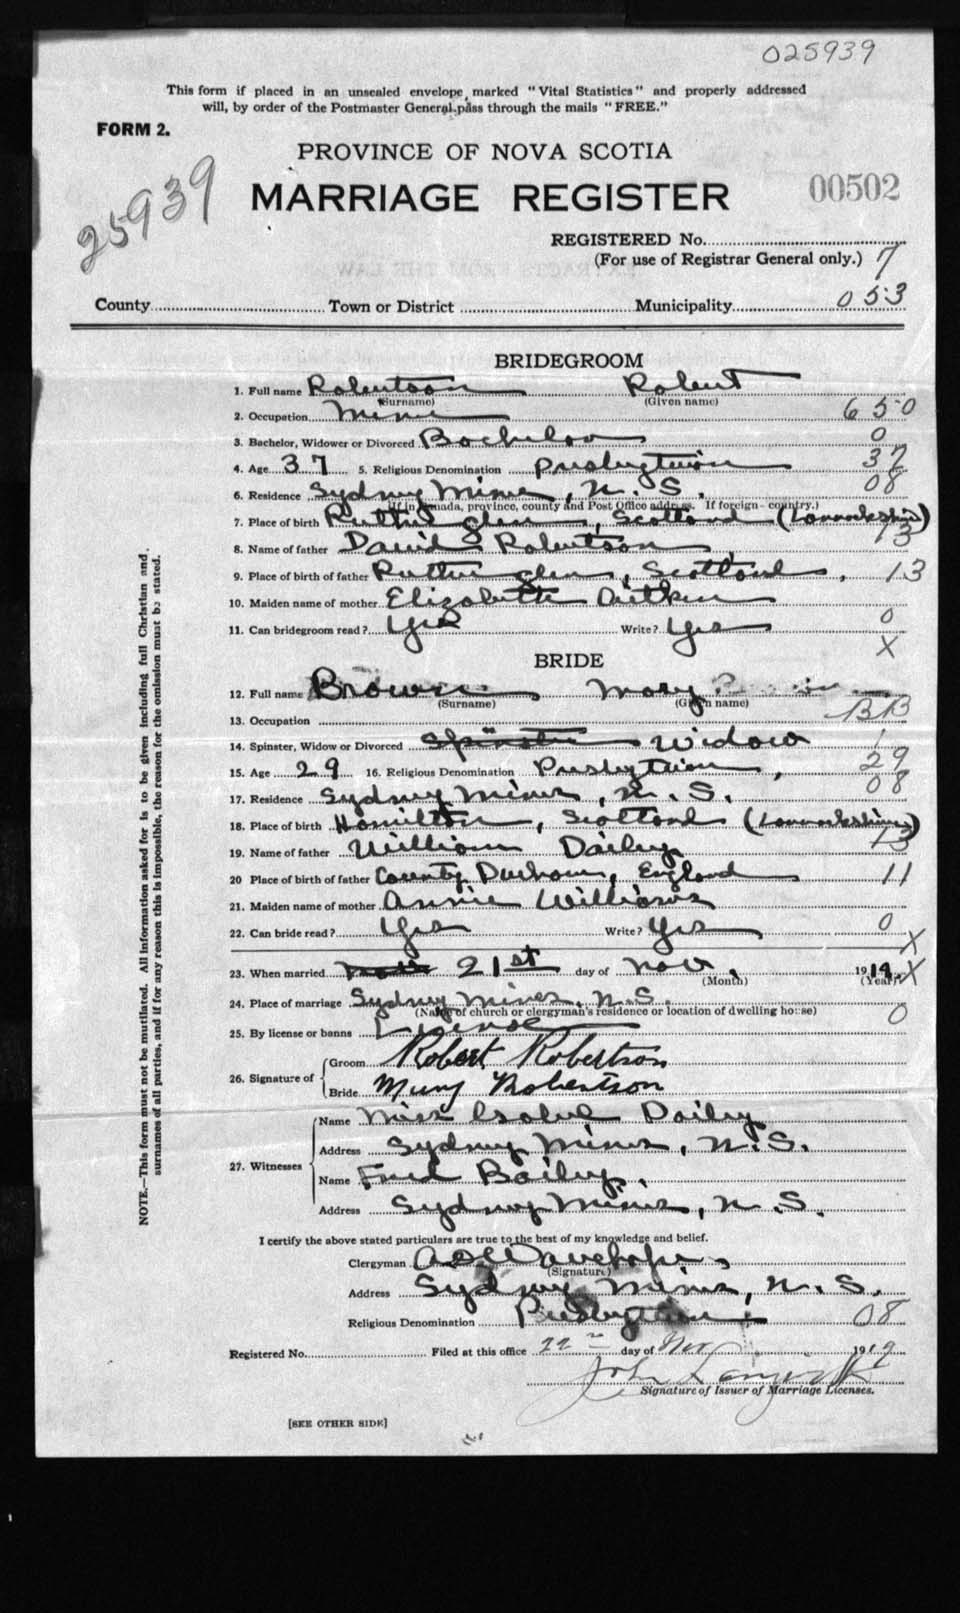 025939
This form if placed in an unsealed envelope, marked "Vital Statistics" and properly addressed
will, by order of the Postmaster General, pass through the mails "FREE."
FORM 2.
PROVINCE OF NOVA SCOTIA
25939
MARRIAGE REGISTER 00502
REGISTERED No.
(For use of Registrar General only.) 7
County Town or District Municipality 053
BRIDEGROOM
1. Full name Robertson Robert
(Surname) (Given name)
2. Occupation Miner 650
3. Bachelor, Widower or Divorced Bachelor 0
4. Age 37 5. Religious Denomination Presbyterian 37
6. Residence Sydney Mines, N. S. 08
(If in Canada, province, county and Post Office address. If foreign country.)
7. Place of birth Rutherglen, Scotland (Lanarkshire)
13
8. Name of father David Robertson
9. Place of birth of father Rutherglen, Scotland. 13
10. Maiden name of mother Elizabeth Aitken
11. Can bridegroom read? Yes Write? Yes 0
X
BRIDE
12. Full name Brown Mary
(Surname) (Given name)
13. Occupation BB
14. Spinster, Widow or Divorced Spinster Widow 1
15. Age 29 16. Religious Denomination Presbyterian, 29
17. Residence Sydney Mines, N. S. 08
18. Place of birth Hamilton, Scotland (Lanarkshire)
13
19. Name of father William Dailey
20 Place of birth of father County Durham, England 11
21. Maiden name of mother Annie Williams
22. Can bride read? Yes Write? Yes 0
X
23. When married 21st day of Nov. 1919. X
(Month) (Year)
24. Place of marriage Sydney Mines, N. S.
(Name of church or clergyman's residence or location of dwelling house) 0
25. By license or banns License
26. Signature of Groom Robert Robertson
Bride Mary Robertson
27. Witnesses Name Miss Isabel Dailey
Address Sydney Mines, N. S.
Name Fred Bailey
Address Sydney Mines, N. S.
I certify the above stated particulars are true to the best of my knowledge and belief.
Clergyman
(Signature)
Address Sydney Mines, N. S.
Religious Denomination Presbyterian 08
Registered No. Filed at this office 22nd day of Nov 1919
John
Signature of Issuer of Marriage Licenses.
[SEE OTHER SIDE]
NOTE.—This form must not be mutilated. All information asked for is to be given including full Christian and
surnames of all parties, and if for any reason this is impossible, the reason for the omission must be stated.